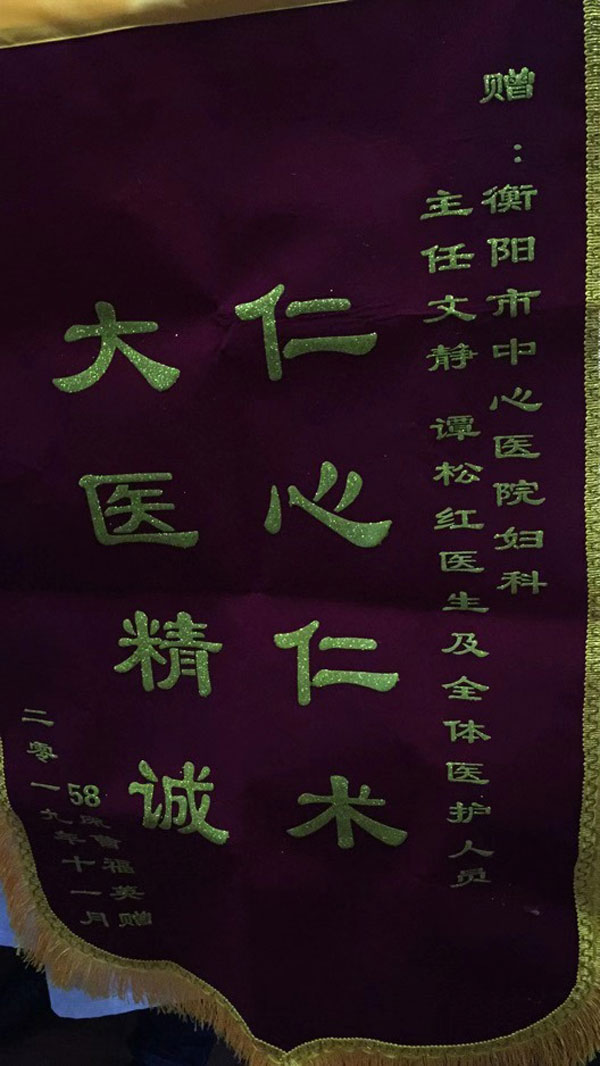 赠：衡阳市中心医院妇科
主任文静 谭松红医生及全体医护人员
仁心仁术
大医精诚
58床曾福英赠
二零一九年十一月